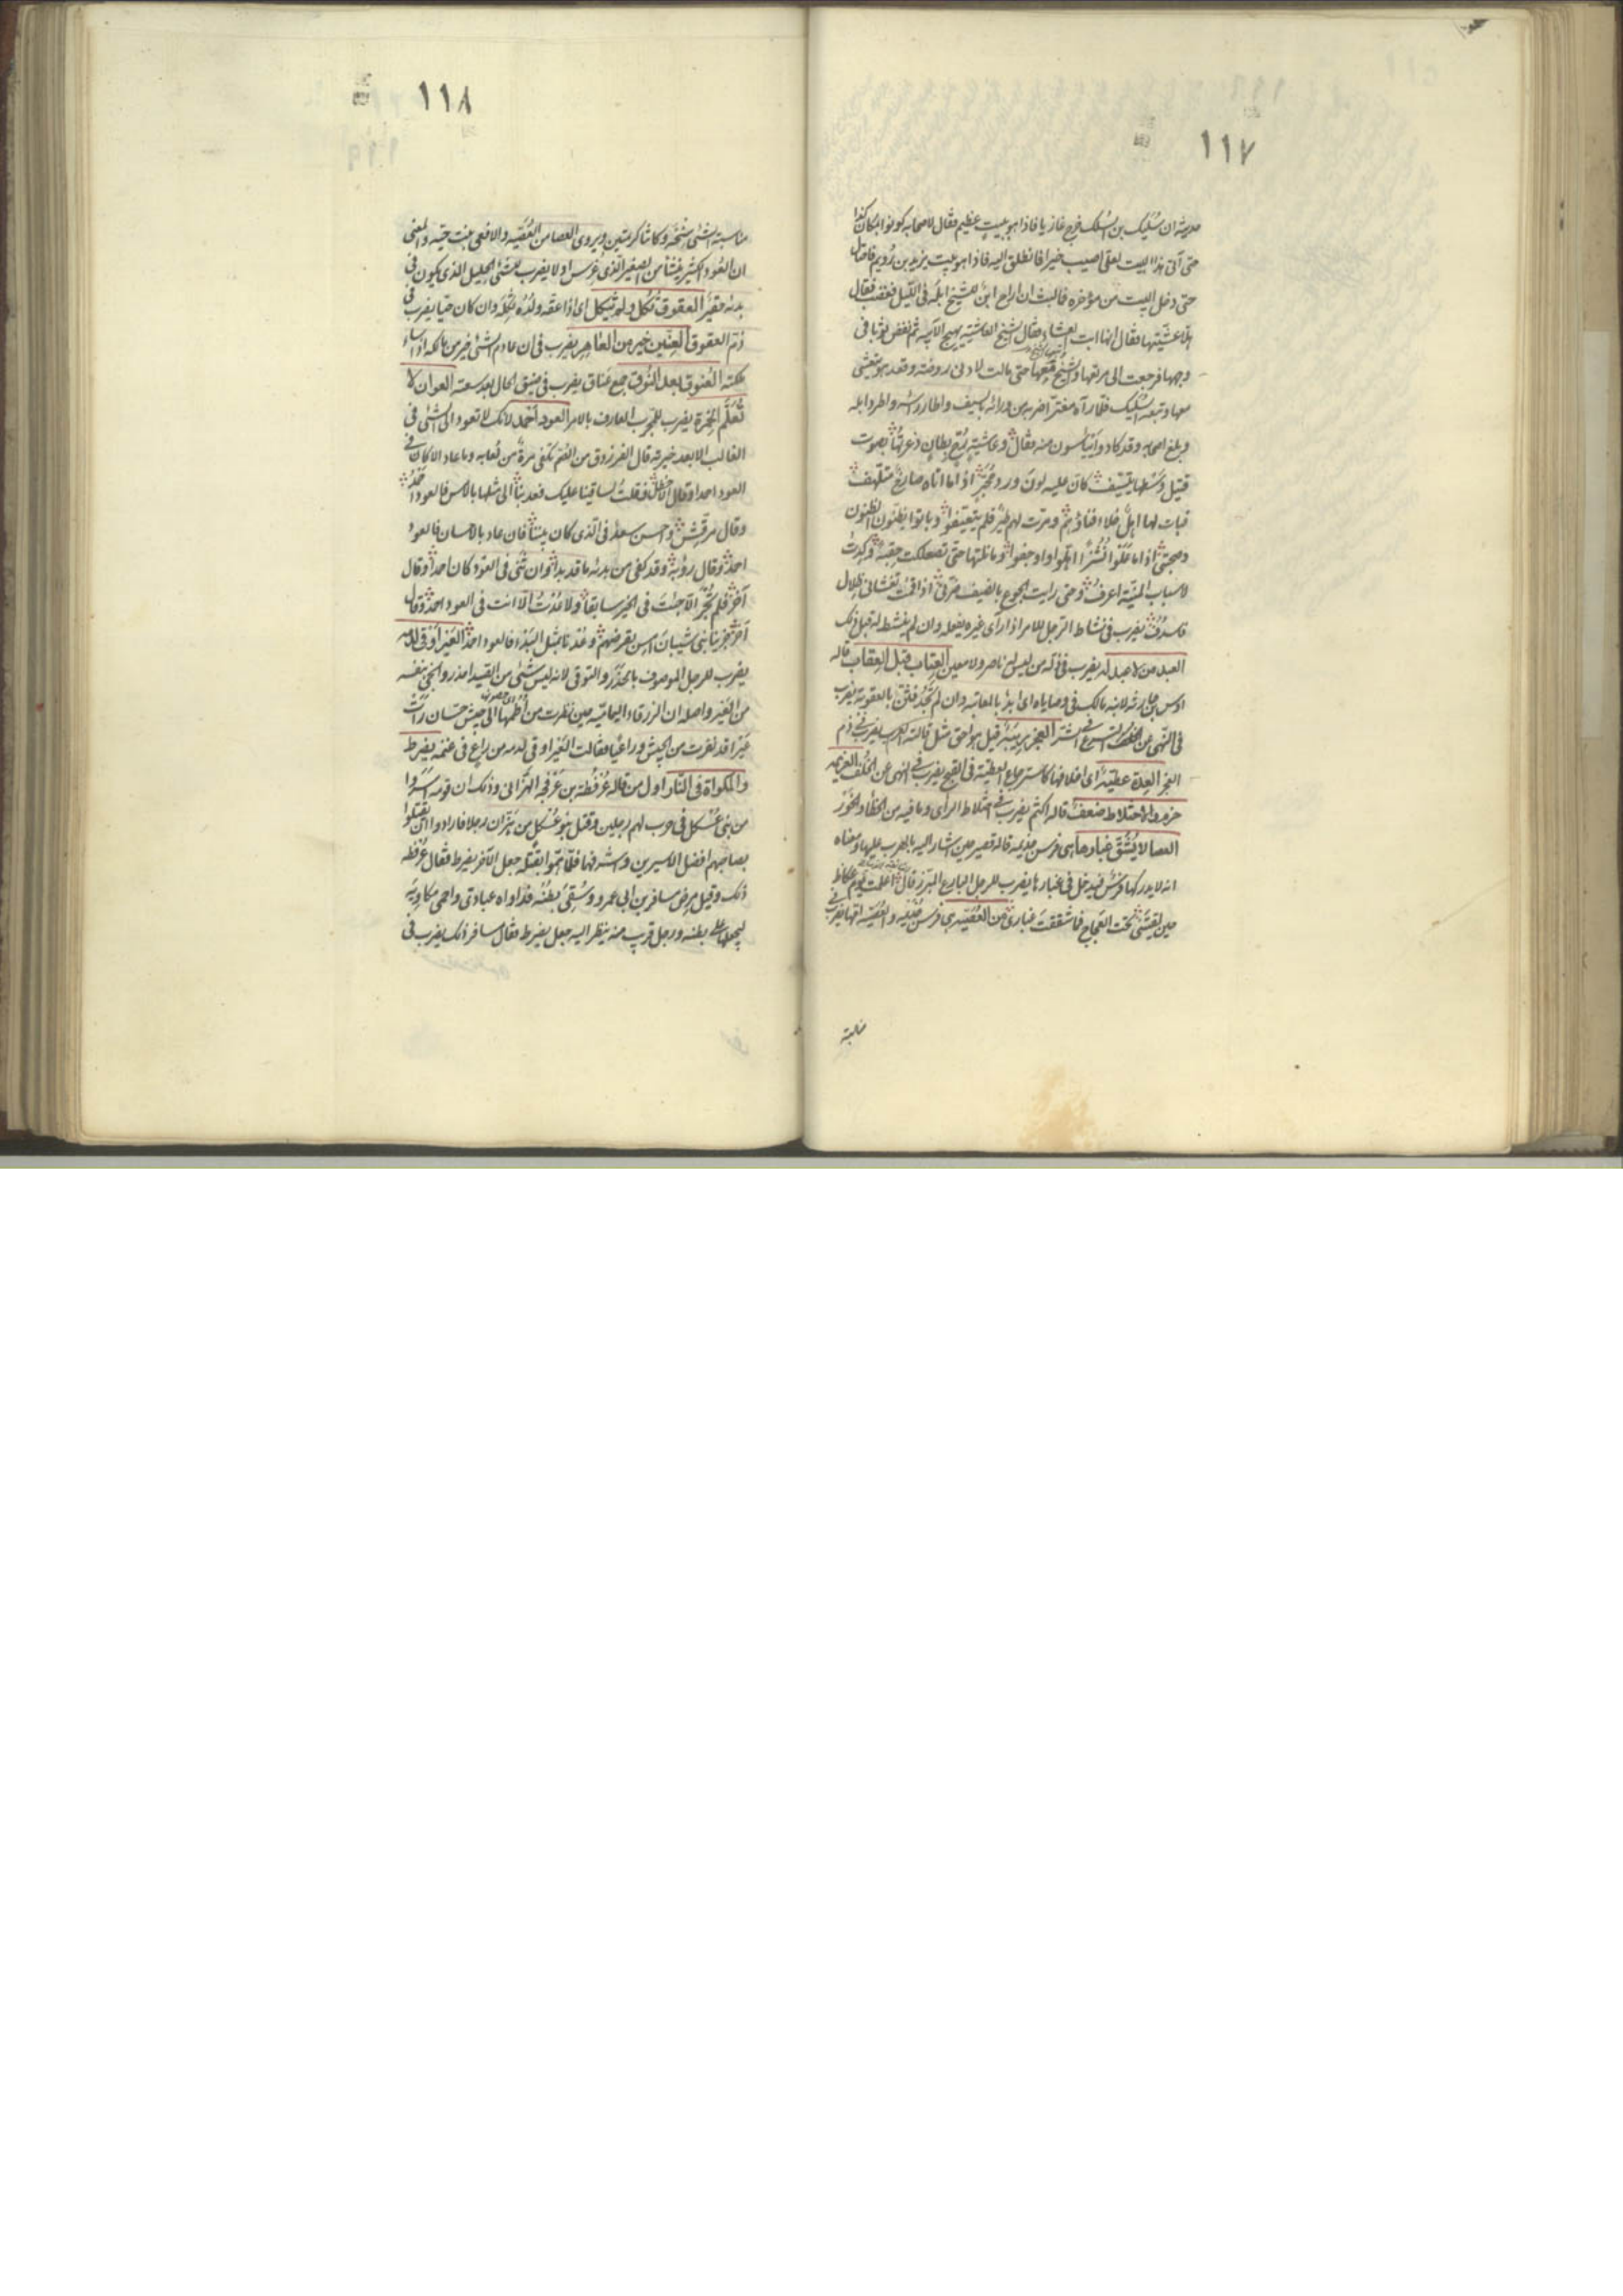 ١١٧
حديثه ان سُلَيك بن السُلَك خرج غازيا فاذا هو ببيتٍ عظيم فقال لاصحابه كونوا بمكان كذا
حتى آتي هذا البيت لعلى اصيب خيرا فانطلق اليه فاذا هو بيت يزيد بن رُويم فاحتال
حتى دخل البيت من مؤخره فما لبث ان اراح ابنٌ للشيخ ابلَه في الليل فغضب فقال
هلّا عشّيتها فقال انها ابت العشاء فقال الشيخ العاشية يهيج الآبية ثم نفض ثوبا في
وجهها فرجعت الى مرتعها والشيخ معها حتى مالت لادنى روضة وقعد هو يتعشى
معها وتبعه السُليك فلما رآه مغترّا ضربه من ورائه بالسيف واطار راسه واطرد ابله
وبلغ اصحابه وقد كادوا يَيْأسون منه فقال وعاشيةٍ رُتّعٍ بِطانٍ ذعرتُها بصوت
قتيل وَسْطها يتسيّف كان عليه لونَ وردٍ مُحبّرٍ اذا ما اتاه صارخٌ متلهّف
فبات لها اهلٌ خلاء فناؤهم ومرّت لهم طيرٌ فلم يتعيّفوا وباتوا يظنون الظنون
وصحبتي اذا ما عَلَوا نُشُزاً اهلّوا واوجفوا وما نلتها حتى تصعلكتُ حِقبةً وكِدتُ
لاسباب المنيّة اعرفُ وحتى رايت الجوع بالصيف ضرّني اذا قمتُ تغشاني ظلال
فاسدُفُ يضرب في نشاط الرجل للامر اذا رآى غيره يفعله وان لم ينشط له قبل ذلك
العبد من لا عبد له يضرب في ذلّة من ليس له ناصر ولا معين العِتاب قبل العِقاب قاله
اوس بن حارثة لابنه مالك في وصاياه اى ابدأ بالمعاتبة وان لم تُجْدِ فثنّ بالعقوبة يضرب
في النهي عن التسرع في الشر العجز رِيبَة قيل هو احق مثل قالته العرب يضرب في ذم
العجز العِدة عطيّة اى اخلافها كاسترجاع العطية في القبح يضرب في النهى عن الخُلف العزيمة
حزم والاختلاط ضعف قاله اكثم يضرب في اختلاط الراى وما فيه من الخطأ والخَوَر
العصا لا يُشَقّ غبارها هى فرس جذيمة قاله قصير حين اشار اليه بالهرب عليها ومعناه
انه لا يدركها فرسٌ فيدخل في غبارها يضرب للرجل البارع المبرّز قال أعلمت يوم عكاظ
حين لقيتَني تحت العَجاج فما شققت غبارى من العُصَيّة هى فرس جذيمة والعُصيّة امّها يضرب في
مناسبة
١١٨
مناسبة الشئ سِنخَه وكانتا كريمتين ويروى العصا من العُصَيّة والافعى بنت حيّة والمعنى
ان العُود الكبير ينشأ من الصغير الذى غرس اولا يضرب للشئ الجليل الذى يكون في
بدئه حقيرا العقوق ثُكل ولم يَثكل اى اذا عقّه ولدُه ثكِلَه وان كان حيّا يضرب في
ذمّ العقوق العِنّين خير من العَاهِر يضرب في ان عادم الشئ خير من مالكه اذا اساء
ملكته العُنوق بعد النُوق جمع عَناق يضرب في ضيق الحال بعد سعته العوان لا
تُعَلَّم الخِمرة يضرب للمجرِّب العارف بالامر العود احمد لانك لا تعود الى الشئ في
الغالب الا بعد خبرته قال الفرزدق من الغم تكفى مرة من لعابه وما عاد الا كان في
العود احمدا وقال الاخطل فقلتُ لساقينا عليك فعد بنا الى مثلها بالامس فالعود احمدُ
وقال مرقّش واحسن سعد في الذى كان بيننا فان عاد بالاحسان فالعودُ
احمدُ وقال رؤبة وقد كفى من بدئه ما قد بدا وان ثَنى في العود كان احمدا وقال
آخر فلم تجْرِ الا جئتَ في الخير سابقا ولا عُدْتَ الا انت في العود احمدُ وقال
آخر جزينا بنى شيبانَ امسِ بقرضهم وعُدْنا بمثل البَدْء فالعود احمدُ العَيْر أوْقى لدمه
يضرب للرجل الموصوف بالحَذَر والتوقى لانه ليس شئ من الصيد احذر وانجى بنفسه
من العَير واصله ان الزرقاء اليمامية حين نظرت من اُطُمها الى جيش حسّان رأت
عَيْرا قد نفرت من الجيش وراعيا فقالت العَيْر اوقى لدمه من راعٍ في غنمه يضرط
والمكواة في النار اول من قاله عُرفُطة بن عَرفَجة الهِزّانى وذلك ان قومه اسَروا
من بنى عُكل في حرب لهم رجلين وقتل بنو عُكل من هِزّان رجلا فارادوا ان يقتلوا
بصاحبهم افضل الاسيرين واشرفهما فلمّا همّوا بقتله جعل الآخر يضرط فقال عُرفطة
ذلك وقيل مرض مسافر بن ابى عمرو وسُقِىَ بطنُه فداواه عبادىّ واحمى مكاويَه
ليجعلها على بطنه ورجل قريب منه ينظر اليه جعل يضرط فقال مسافر ذلك يضرب في